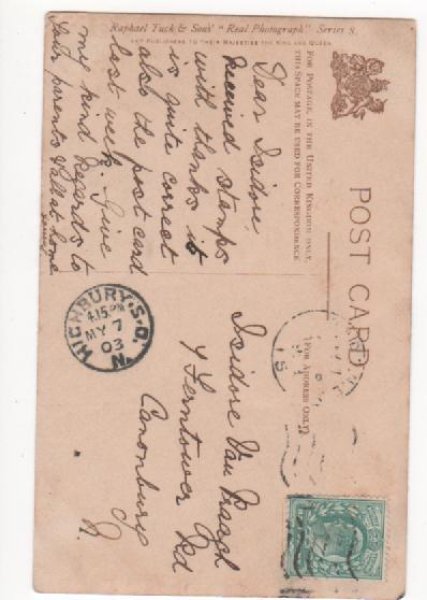 Raphael Tuck & Sons' "Real Photograph" Series 8.
ART PUBLISHERS TO THEIR MAJESTIES THE KING AND QUEEN.
FOR POSTAGE IN THE UNITED KINGDOM ONLY,
THIS SPACE MAY BE USED FOR CORRESPONDENCE
POST CARD
(FOR ADDRESS ONLY)
Dear Isidore
Received stamps
with thanks it
is quite correct
also the post card
last week. Give
my kind regards to
your parents & all at home
HIGHBURY. S.O.
4.15 PM
MY 7
03
N.
Isidore Van Praagh
4 Ferntower Rd
Canonbury
N.